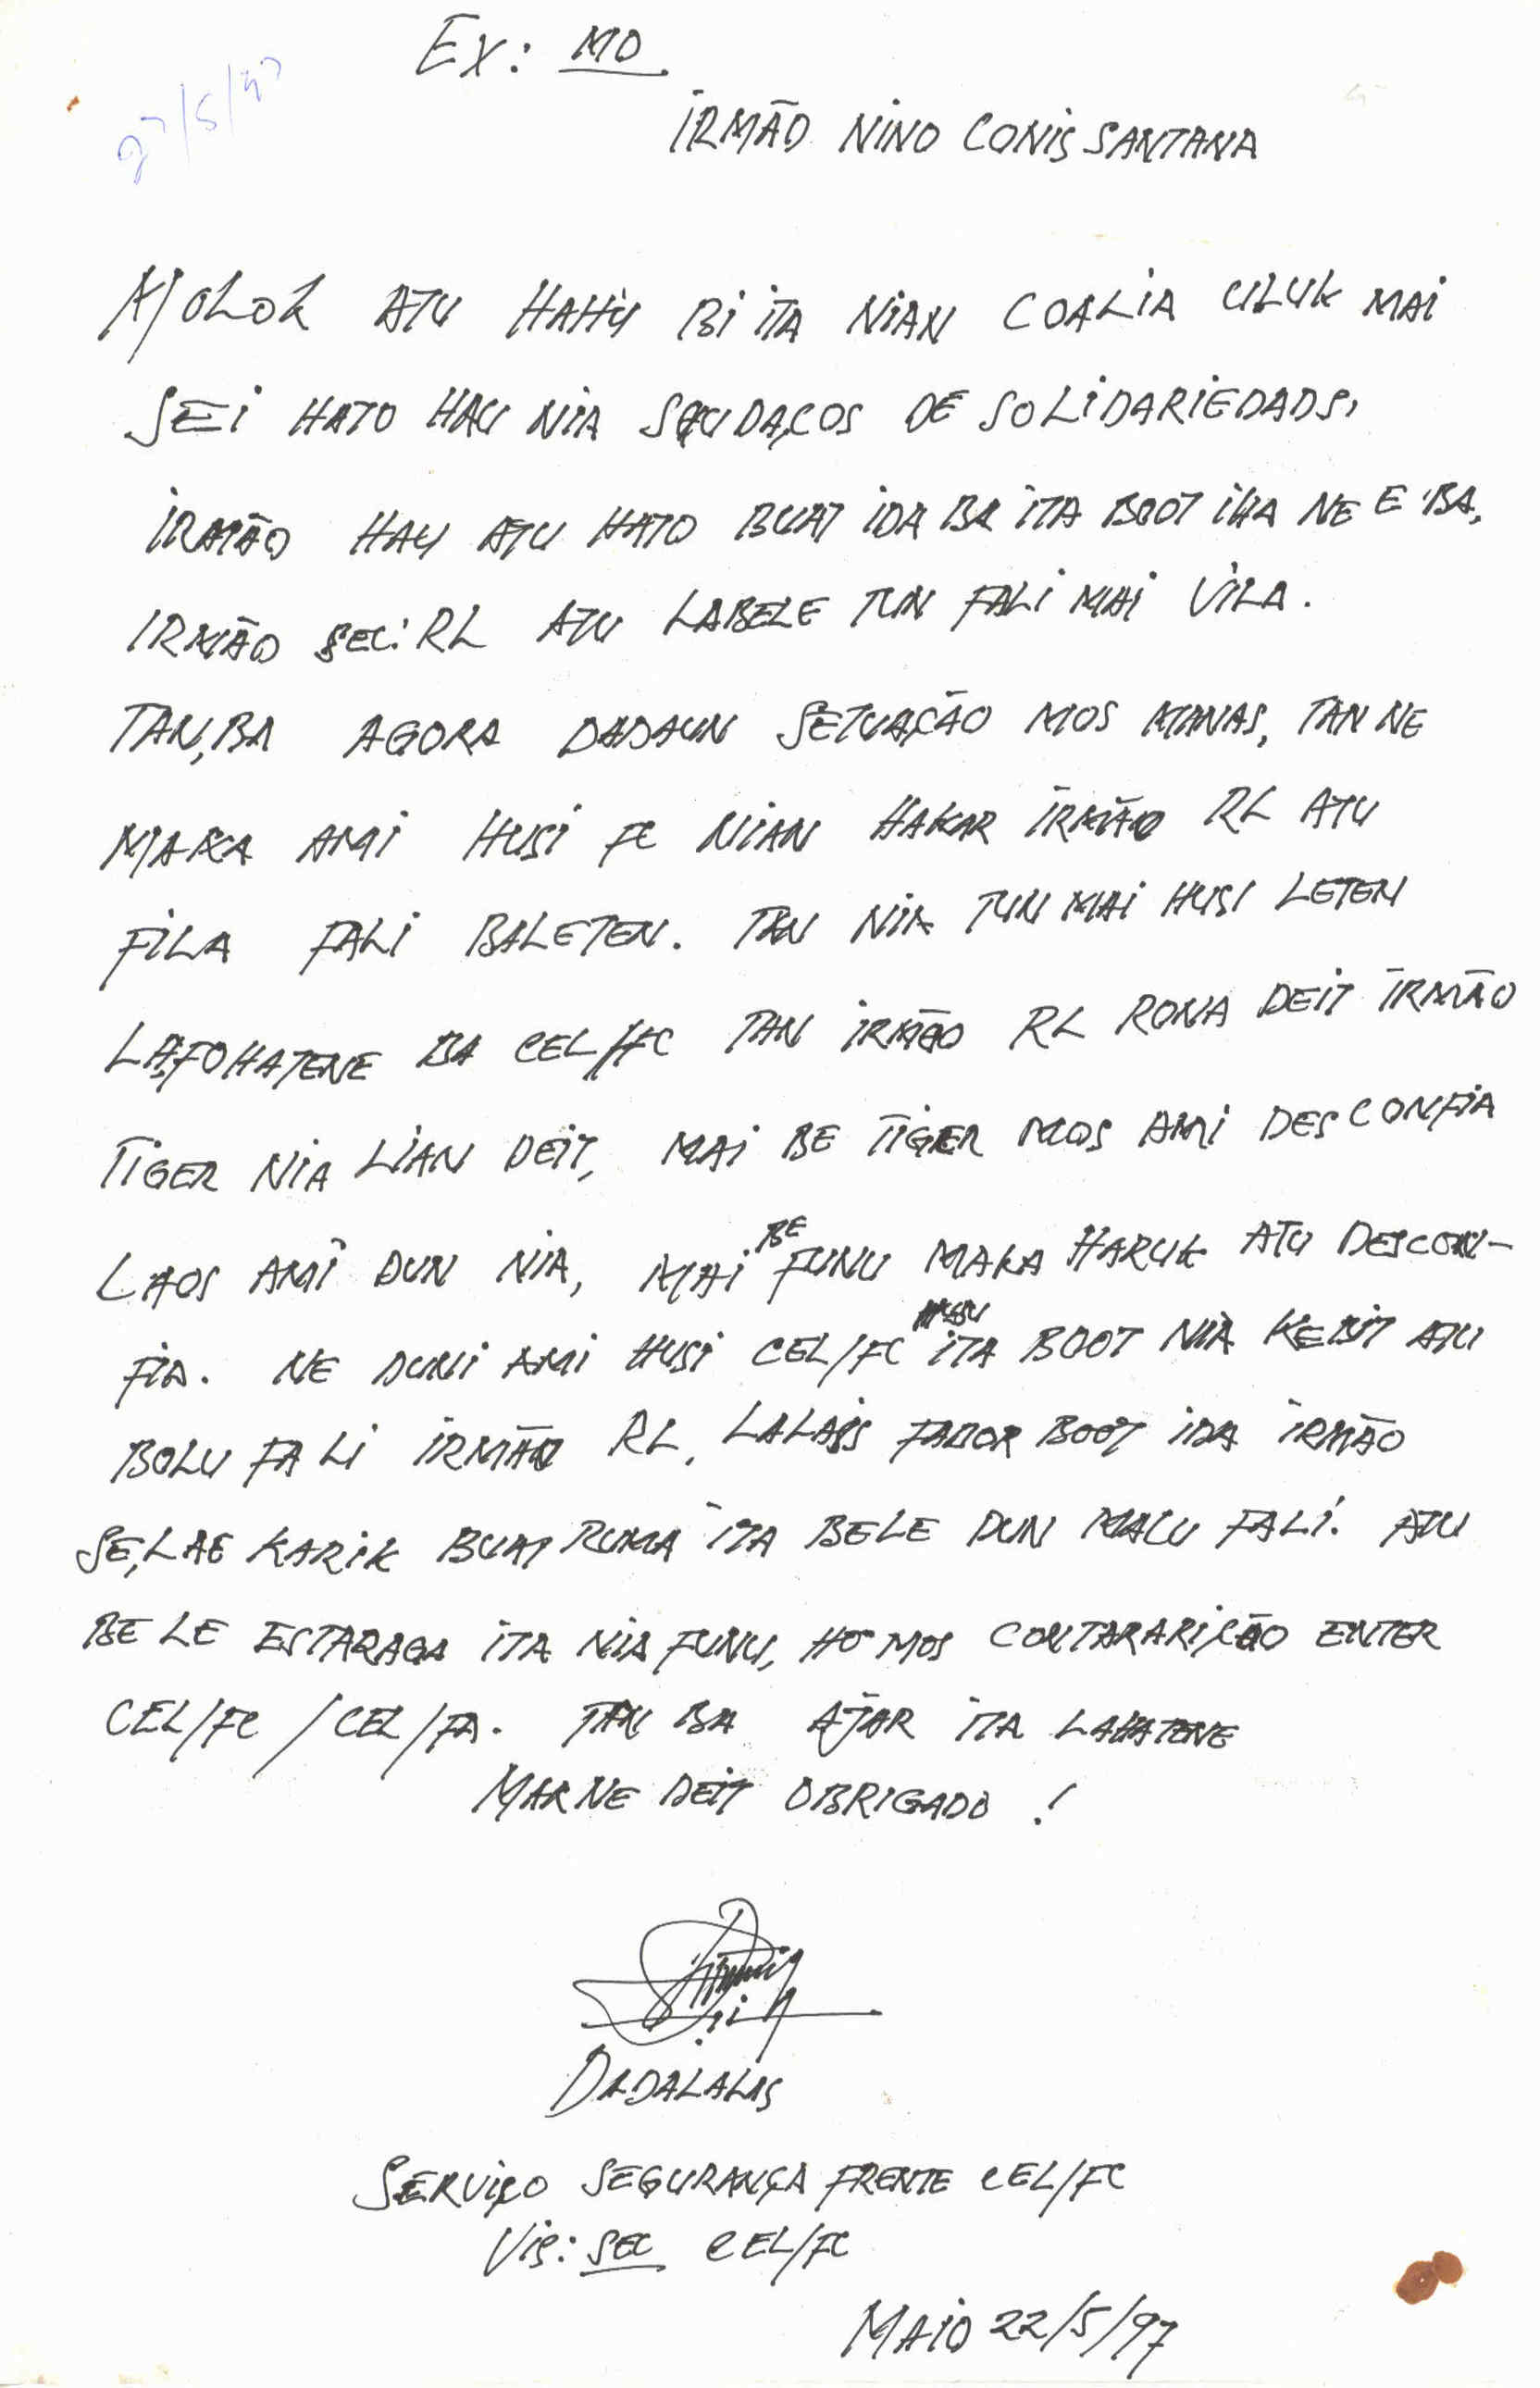 Ex: MO
27/5/97
IRMÃO NINO CONIS SANTANA
MOLOK ATU HAHU BI ITA NIAN COALIA ULUK MAI
SEI HATO HAU NIA SAUDAÇOS DE SOLIDARIEDADS,
IRMÃO HAU ATU HATO BUAT IDA BA ITA BOOT IHA NE E BA,
IRMÃO SEC: RL ATU LABELE TUN FALI MAI VILA.
TAN,BA AGORA DADAUN SETUAÇÃO MOS MANAS, TAN NE
MAKA AMI HUSI FC NIAN HAKAR IRMÃO RL ATU
FILA FALI BALETEN. TAN NIA TUN MAI HUSI LETEN
LA,FOHATENE BA CEL/FC TAN IRMÃO RL RONA DEIT IRMÃO
TIGER NIA LIAN DEIT, MAI BE TIGER MOS AMI DESCONFIA
LAOS AMI DUN NIA, MAI BE FUNU MAKA HARUK ATU DESCON-
FIA. NE DUNI AMI HUSI CEL/FC ITA BOOT NIA KEBIT ATU
BOLU FALI IRMÃO RL, LALAIS FABOR BOOT IDA IRMÃO
SE,LAE KARIK BUAT RUMA ITA BELE DUN MALU FALI. ATU
BELE ESTARAGA ITA NIA FUNU, HO MOS CONTARARIÇÃO ENTER
CEL/FC / CEL/FA. TAN BA AJAR ITA LAHATENE
MAK NE DEIT OBRIGADO !
DADALALAS
SERVIÇO SEGURANÇA FRENTE CEL/FC
VIS: SEC CEL/FC
MAIO 22/5/97